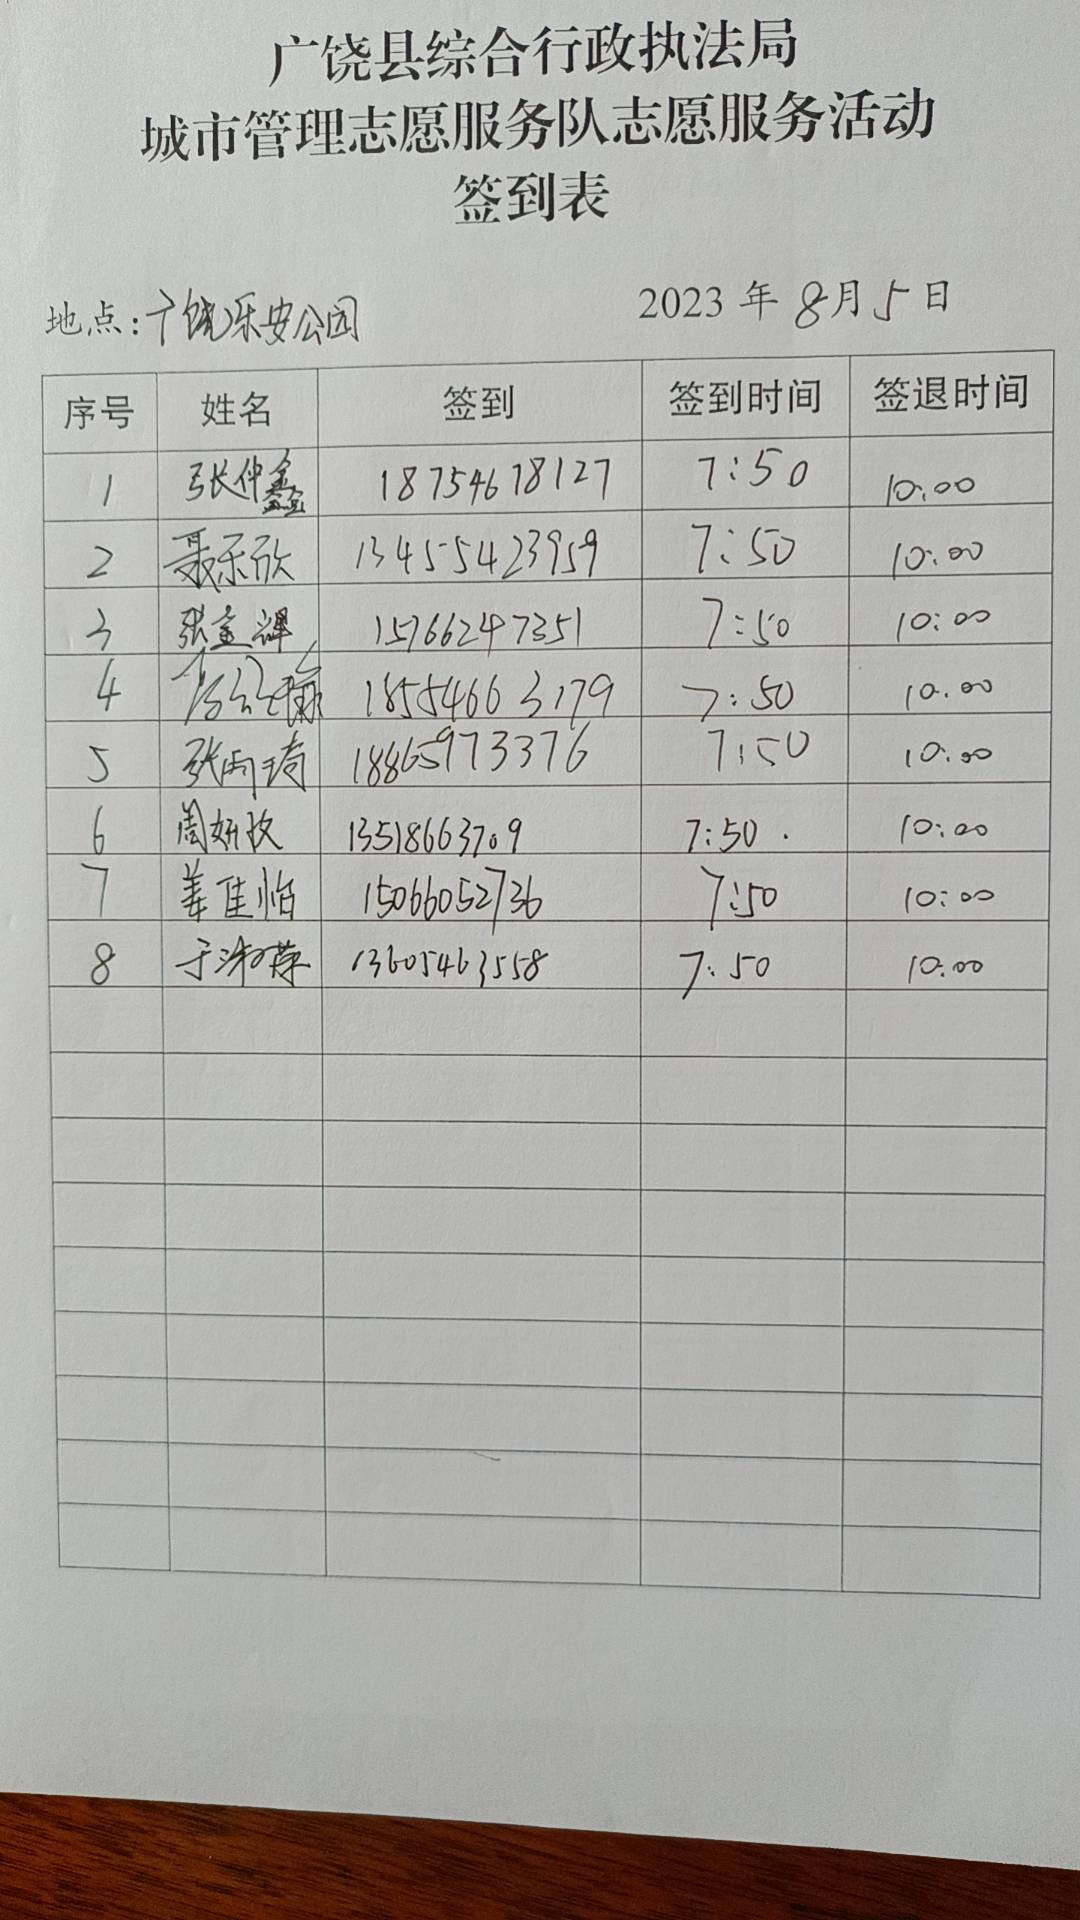 广饶县综合行政执法局
城市管理志愿服务队志愿服务活动
签到表
地点:广饶乐安公园 2023年8月5日
序号 姓名 签到 签到时间 签退时间
1 张仲鑫 18754678127 7:50 10:00
2 聂乐欣 13455423959 7:50 10:00
3 张金泽 15766247351 7:50 10:00
4 18554663179 7:50 10:00
5 张雨琦 18865973376 7:50 10:00
6 周妍玫 13518663709 7:50 10:00
7 姜佳怡 15066052736 7:50 10:00
8 于淑萍 13605463558 7:50 10:00